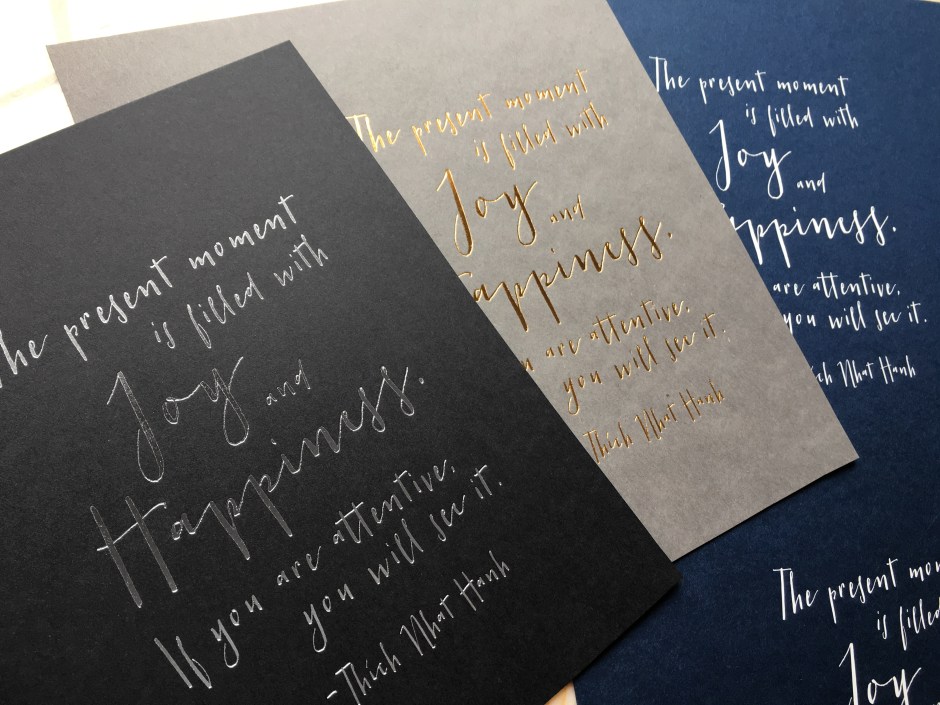 The present moment
is filled with
Joy and
Happiness.
If you are attentive,
you will see it.
-Thich Nhat Hanh
The present moment
is filled with
Joy and
appiness.
are attentive,
you will see it.
Thich Nhat Hanh
The present moment
is filled with
Joy and
ppiness.
are attentive,
you will see it.
ch Nhat Hanh
The present mom
is filled
Joy